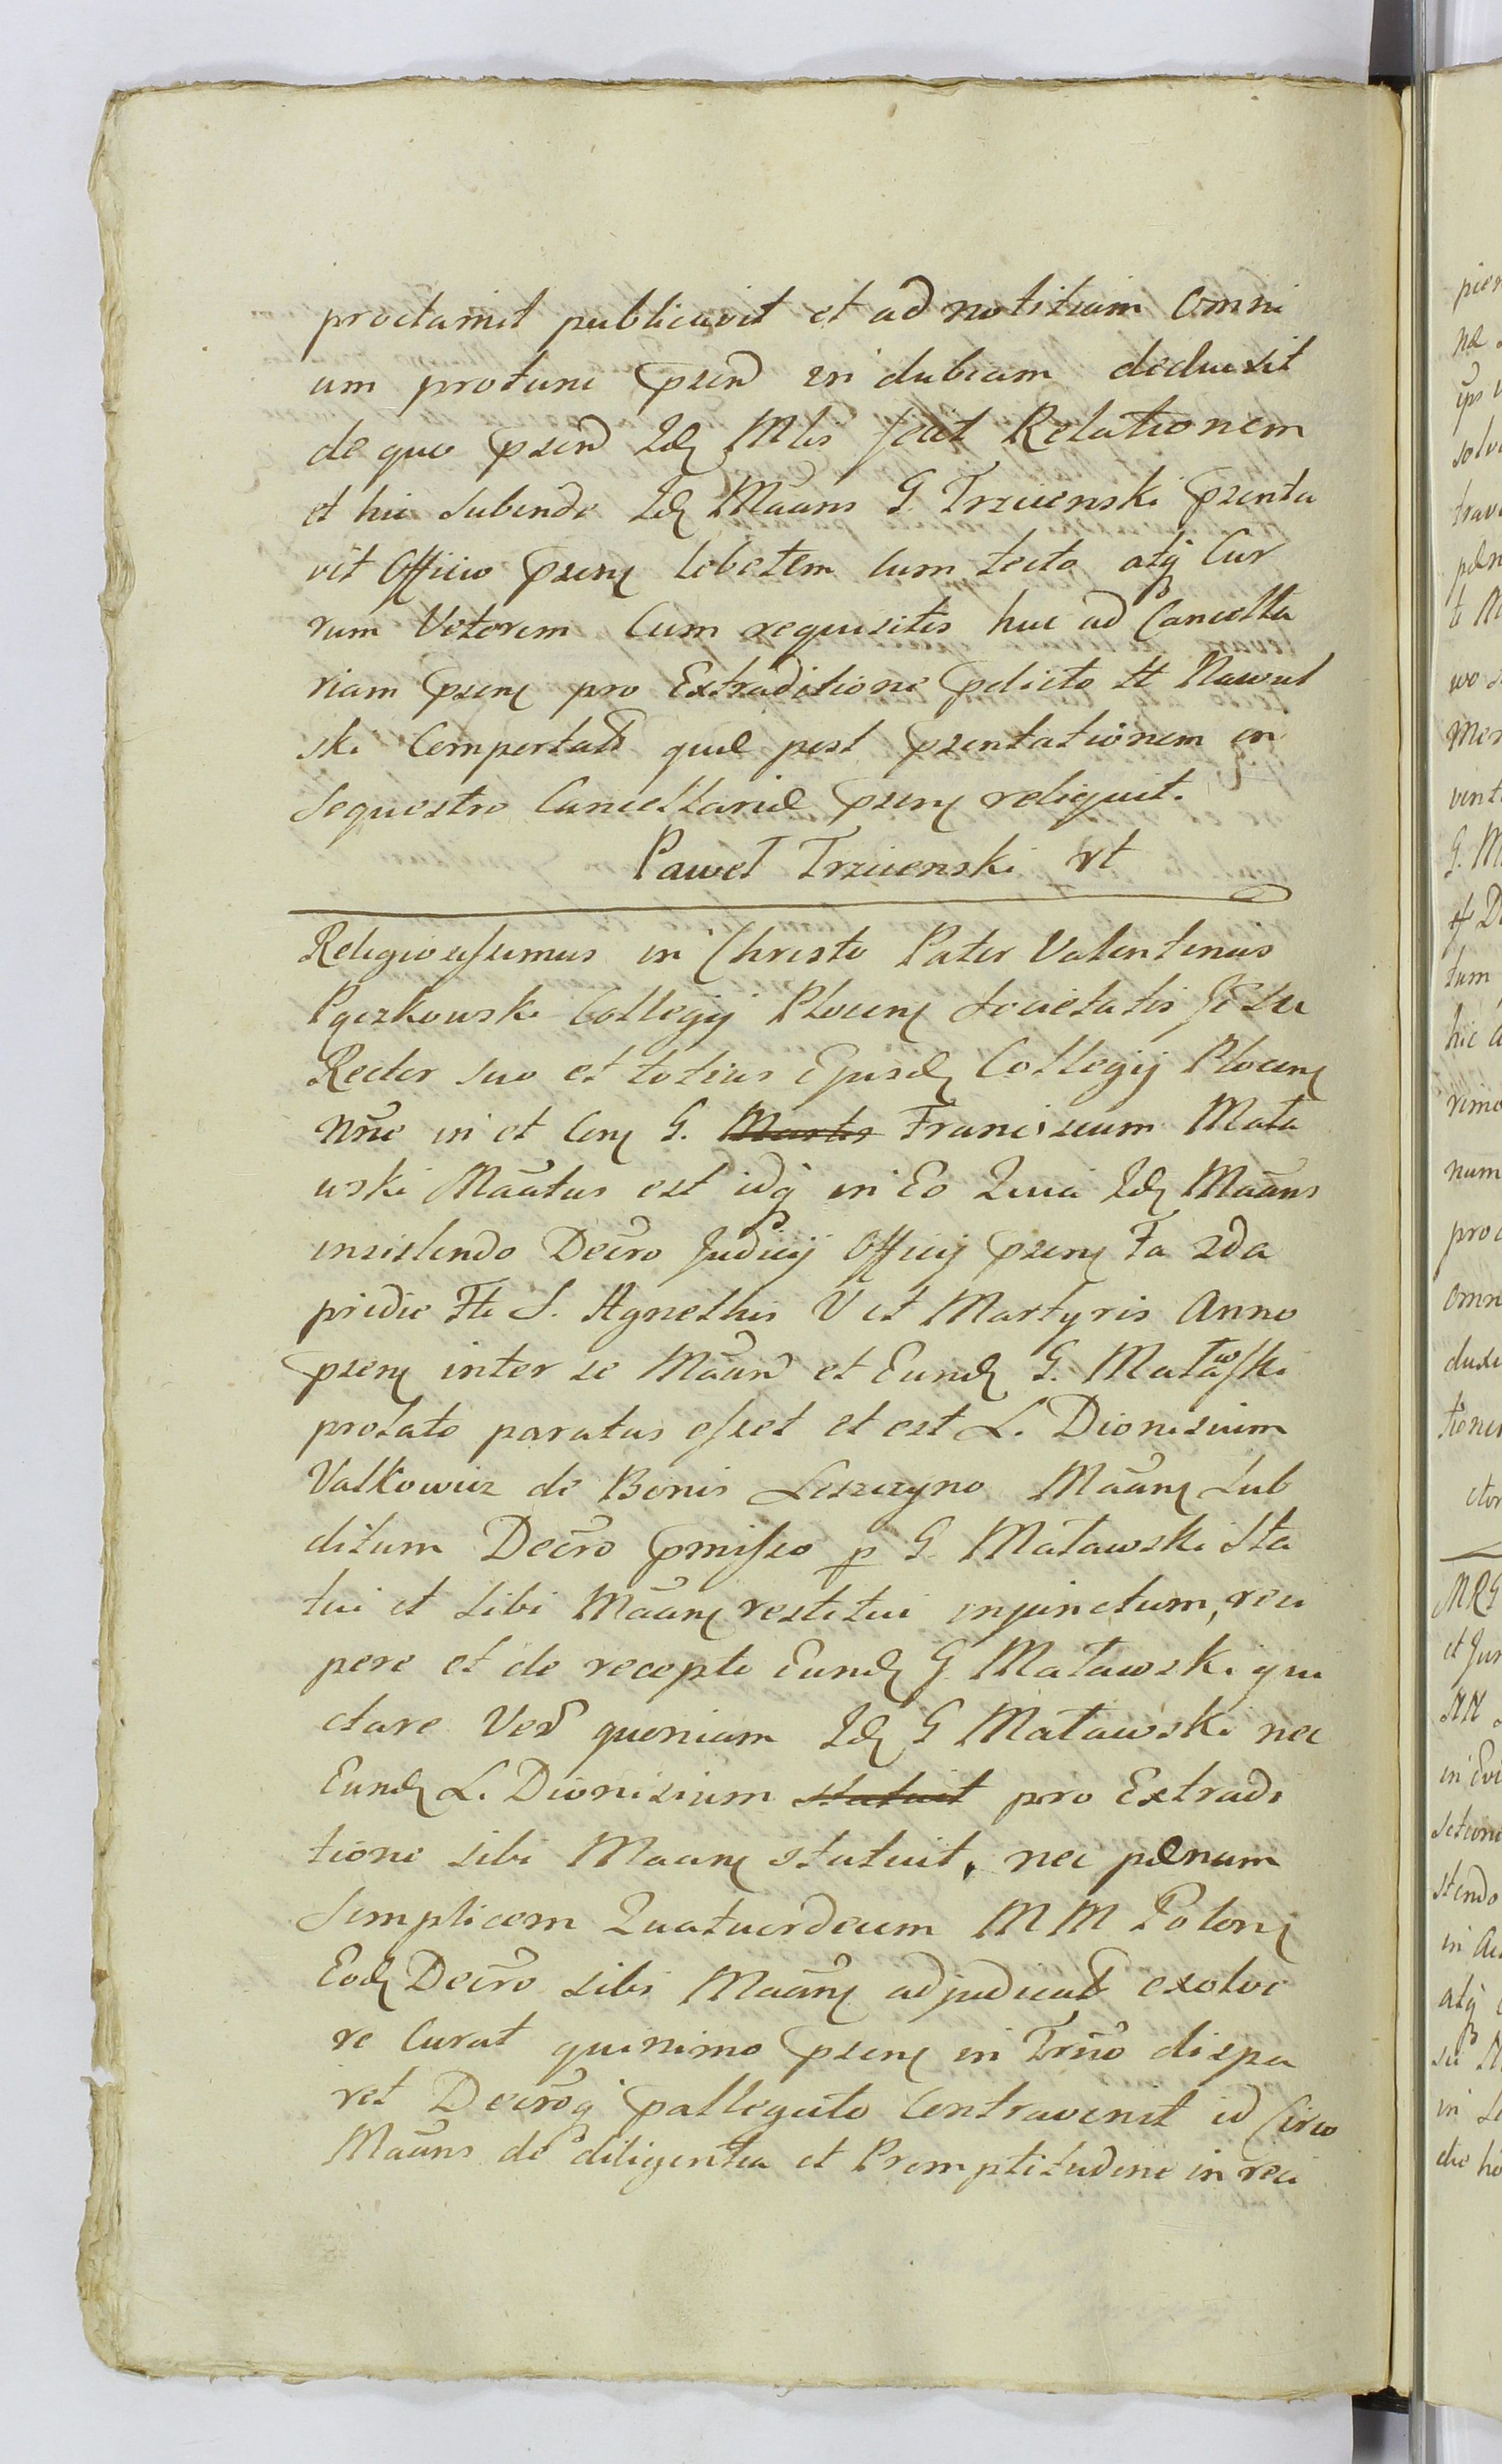 proclamit publicavit et ad notitiam Omni
um protunc pzeñ in dubiam deduxit
de quo pzeñ Idem Mlis fecit Relationem
et hic Subinde Idem Mãans G. Trzcienski pzenta
vit Officio pzenq lebetem cum tecto atq Cur
rum Veterem Cum requisitis huc ad Cancella
riam pzenq pro Extraditione pdicto G Nawul
ski Comportat quæ post pzentationem in
Sequestro Cancellariæ pzenq reliquit.
Paweł Trzcienski rt
Religiosissimus in Christo Pater Valentinus
Pączkowski Collegij Plocenq Societatis Jesu
Rector suo et totius Ejusdem Collegij Plocenq
Nñe in et Conq G. Martis Franciscum Mała
wski Mãatus est idq in Eo Quia Idem Mãans
insistendo Decro Judicij Officij pzenq Fa 2da
pridie Fti S. Agnethis V et Martyris Anno
pzenq inter se Mãañ et Eundem G. Maławski
prolato paratus esset et est L. Dionisium
Valkowicz de Bonis Leszczyno Mãanq Sub
ditum Decro pmisso p G. Maławski Sta
tui et sibi Mãanq restitui injunctum, reci
pere et de recepto Eundem G Maławski qui
etare Verˢ quoniam Idem G Maławski nec
Eundem L. Dionisium statuit pro Extradi
tione sibi Maanq statuit, nec pænam
Simplicem Quatuordecim M M Polonq
Eodem Decro sibi Mãanq adjudicat exolve
re Curat quinimo pzenq in Trño dispa
ret Decroq pallegato Contravenit id Circo
Mãans de diligentia et Promptitudine in reci